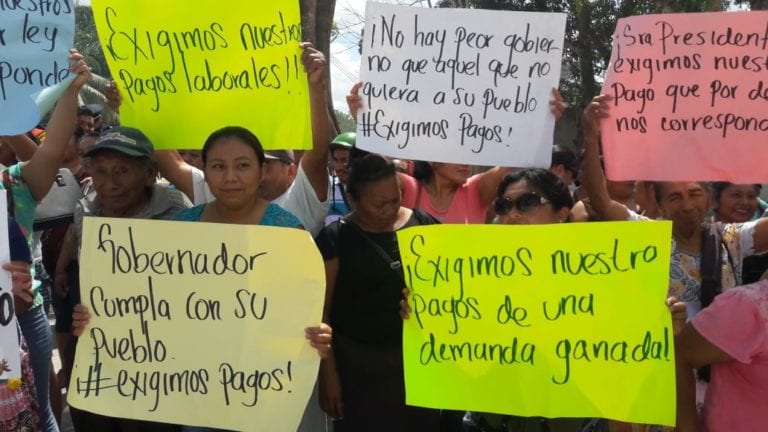 nuestros
r ley
ponde
Exigimos nuestros
pagos laborales!!
¡No hay peor gobier
no que aquel que no
quiera a su pueblo
#Exigimos Pagos!
¡Sra President
exigimos nuest
Pago que por de
nos correspond
Gobernador
Cumpla con su
Pueblo.
¡#exigimos pagos!
¡Exigimos nuestro
pagos de una
demanda ganada!